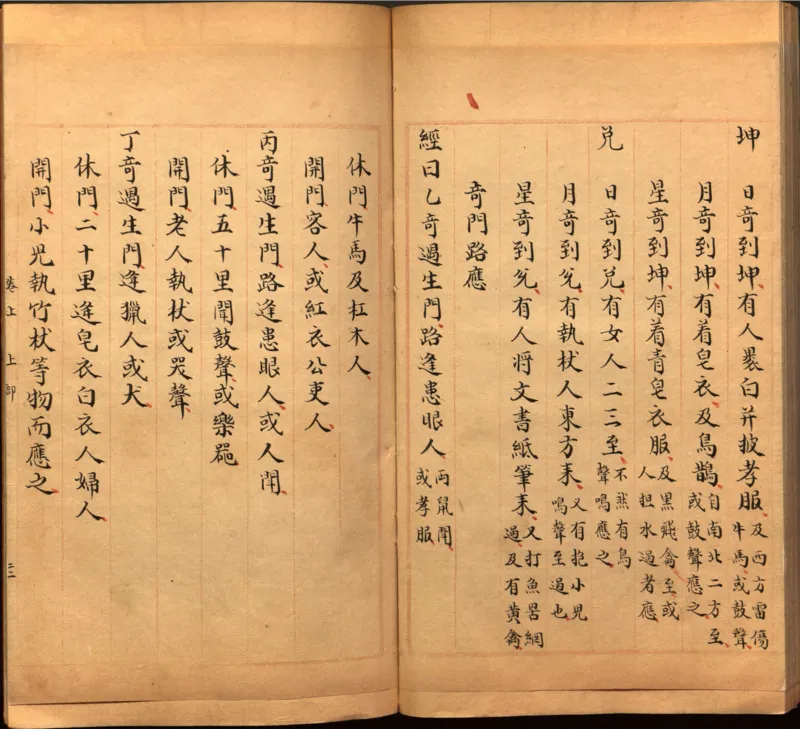 坤 日奇到坤有人裹白并披孝服及西方雷傷牛馬或鼓聲
月奇到坤有着皂衣及鳥鵲自南北二方至或鼓聲應之
星奇到坤有着青皂衣服及黑飛禽至或人担水過者應
兌 日奇到兌有女人二三至不然有鳥聲鳴應之
月奇到兌有執杖人東方来又有抱小児鳴聲至過也
星奇到兌有人将文書紙筆来又打魚罟網過及有黄禽
奇門路應
經曰乙奇遇生門路逢患眼人両鼠鬧或孝服
休門牛馬及扛木人
開門客人或紅衣公吏人
丙奇遇生門路逢患眼人或人鬧
休門五十里聞鼓聲或樂器
開門老人執杖或哭聲
丁奇遇生門逢獵人或犬
休門二十里逢皂衣白衣人婦人
開門小児執竹杖等物而應之
卷上 上
三